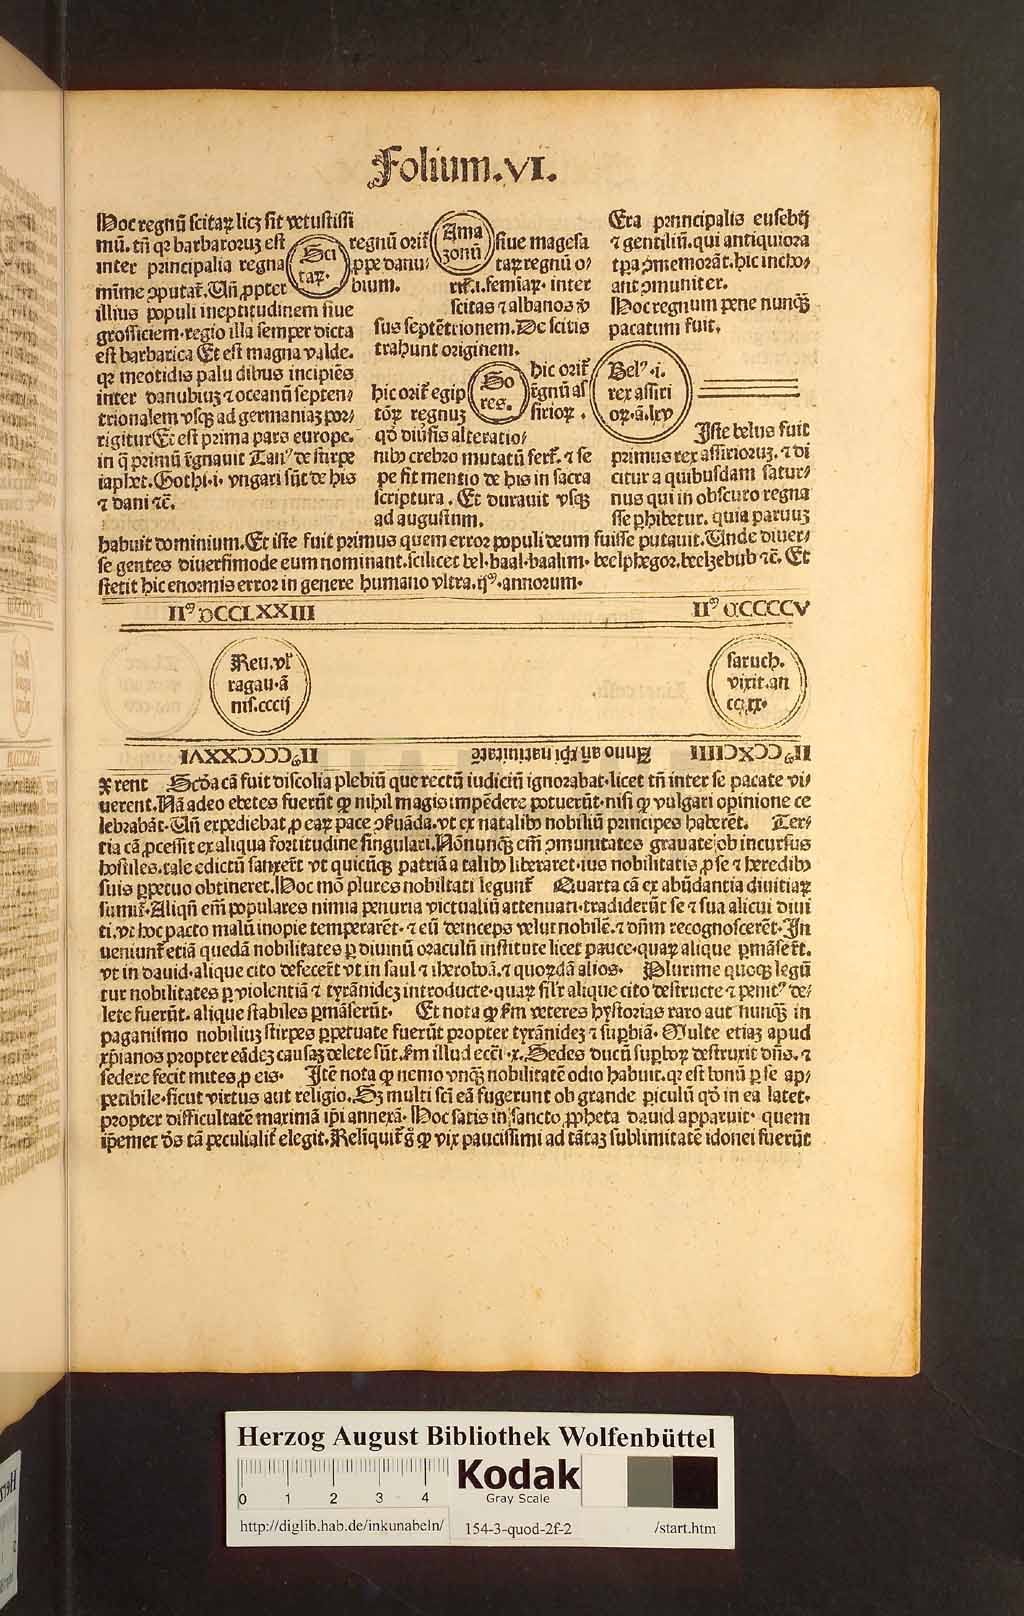 Folium.VI.
Hoc regnũ scitaꝝ licꝫ sit vetustissi
mũ. tñ qꝛ barbaroruꝫ est
inter principalia regna
mime ꝯputat̃. Uñ ꝓpter
illius populi ineptitudinem siue
grossiciem·regio illa semper dicta
est barbarica Et est magna valde.
qꝛ meotidis palu dibus incipiẽs
inter danubiuꝫ ⁊ oceanũ septen⸗
trionalem vsqꝫ ad germaniaꝫ por⸗
rigitur Et est prima pars europe.
in q̃ primũ r̃gnauit Tanꝰ de stirpe
iaphet. Gothi·i· vngari sũt de his
⁊ dani ⁊c̃.
Sci
taꝝ.
regnũ orit̃
ꝓpe danu⸗
bium.
Ama
zonũ
siue magesa
taꝝ regnũ o⸗
rit̃.i.femiaꝝ· inter
scitas ⁊ albanos ꝟ
sus septẽtrionem. De scitis
trahunt originem.
hic orit̃ egip
tõꝝ regnuꝫ
So
res.
hic orit̃
r̃gnũ as
sirioꝝ.
qđ diuſis alteratio⸗
nibꝫ crebro mutatũ ferť. ⁊ se
pe fit mentio de his in sacra
scriptura. Et durauit vsqꝫ
ad augustum.
Era principalis eusebij
⁊ gentiliũ. qui antiquiora
tp̃a ꝯmemorãt. hic incho⸗
ant ꝯmuniter.
Hoc regnum pene nunqꝫ̃
pacatum fuit.
Belꝰ·i.
rex assiri
oꝝ.ã.lxv
Iste belus fuit
primus rex assirioruꝫ. ⁊ di
citur a quibusdam satur⸗
nus qui in obscuro regna
sse ꝑhibetur. quia paruuꝫ
habuit dominium. Et iste fuit primus quem error populi deum fuisse putauit. Unde diuer⸗
se gentes diuersimode eum nominant. scilicet bel·baal·baalim· beelphegor. beelzebub ⁊c̃. Et
stetit hic enormis error in genere humano vltra.ijꝰ·annorum·
IIꝰ DCCLXXIII IIꝰ DCCCCV
Reu. vl̃
ragau·ã
nis.cccij
saruch.
vixit.an
ccxxx·
IIꝰCCCCXXVI Anno añ xp̃i natiuitatẽ IIꝰCCXCIIII
xrent Scđa cã fuit discolia plebiũ que rectũ iudiciũ ignorabat·licet tñ inter se pacate vi⸗
uerent. Nã adeo ebetes fuerũt ꝙ nihil magis impẽdere potuerũt·nisi ꝙ vulgari opinione ce
lebrabãt·Uñ expediebat ꝓ eaꝝ pace ꝯseruãda. vt ex natalibꝫ nobiliũ principes haberẽt. Ter⸗
tia cã ꝓcessit ex aliqua fortitudine singulari. Nõnunqꝫ̃ em̃ ꝯmunitates grauate ob incursus
hostiles. tale edictũ sanxert̃ vt quicũqꝫ patriã a talibꝫ liberaret·ius nobilitatis ꝓ se ⁊ heredibꝫ
suis ꝑpetuo obtineret. Hoc mõ plures nobilitati legunt̃ Quarta cã ex abũdantia diuitiaꝝ
sumit̃. Aliqñ em̃ populares nimia penuria victualiũ attenuati·tradiderũt se ⁊ sua alicui diui
ti. vt hoc pacto malũ inopie temperarẽt· ⁊ eũ deinceps velut nobilẽ. ⁊ dñm recognoscerẽt· In
ueniunt̃ etiã quedã nobilitates ꝑ diuinũ oraculũ institute licet pauce·quaꝝ alique ꝑmãsert̃.
vt in dauid·alique cito defecert̃ vt in saul ⁊ iheroboã. ⁊ quorꝝdã alios· Plurime quoqꝫ legũ
tur nobilitates ꝑ violentiã ⁊ tyrãnideꝫ introducte·quaꝝ sil̃r alique cito destructe ⁊ penitꝰ de⸗
lete fuerũt. alique stabiles ꝑmãserũt· Et nota ꝙ ẜm veteres hystorias raro aut nunqꝫ̃ in
paganismo nobiliuꝫ stirpes ꝑpetuate fuerũt propter tyrãnideꝫ ⁊ suꝑbiã· Multe etiaꝫ apud
xp̃ianos propter eãdeꝫ causaꝫ delete sũt. ẜm illud ecc̃i·x. Sedes ducũ suꝑboꝝ destruxit dñs. ⁊
sedere fecit mites ꝓ eis· Itẽ nota ꝙ nemo vnqꝫ̃ nobilitatẽ odio habuit. qꝛ est bonũ ꝑ se ap⸗
petibile·sicut virtus aut religio. Sꝫ multi sc̃i eã fugerunt ob grande ꝑiculũ qđ in ea latet.
propter difficultatẽ maximã ip̃i annexã· Hoc satis in sancto ꝓpheta dauid apparuit· quem
ip̃emet de᷒ tã peculialit̃ elegit. Relinquit̃ g̊ ꝙ vix paucissimi ad tãtaꝫ sublimitatẽ idonei fuerũt
Herzog August Bibliothek Wolfenbüttel
0 1 2 3 4
Kodak
Gray Scale
http://diglib.hab.de/inkunabeln/ 154-3-quod-2f-2 /start.htm